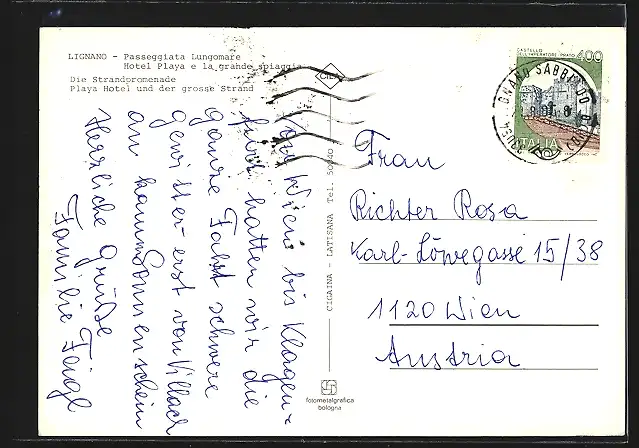 LIGNANO - Passeggiata Lungomare
Hotel Playa e la grande spiaggia
Die Strandpromenade
Playa Hotel und der grosse Strand
Von Wien bis Klagen-
furt hatten wir die
ganze Fahrt schwere
Gewitter erst von Villach
an kamm Sonnenschein
Herzliche Grüße
Familie Feigl
CIGAINA - LATISANA Tel. 50
fotometalgrafica
bologna
CASTELLO
DELL'IMPERATORE PRATO
400
ITALIA
GNANO SABBIADO
Frau
Richter Rosa
Karl-Löwegasse 15/38
1120 Wien
Austria